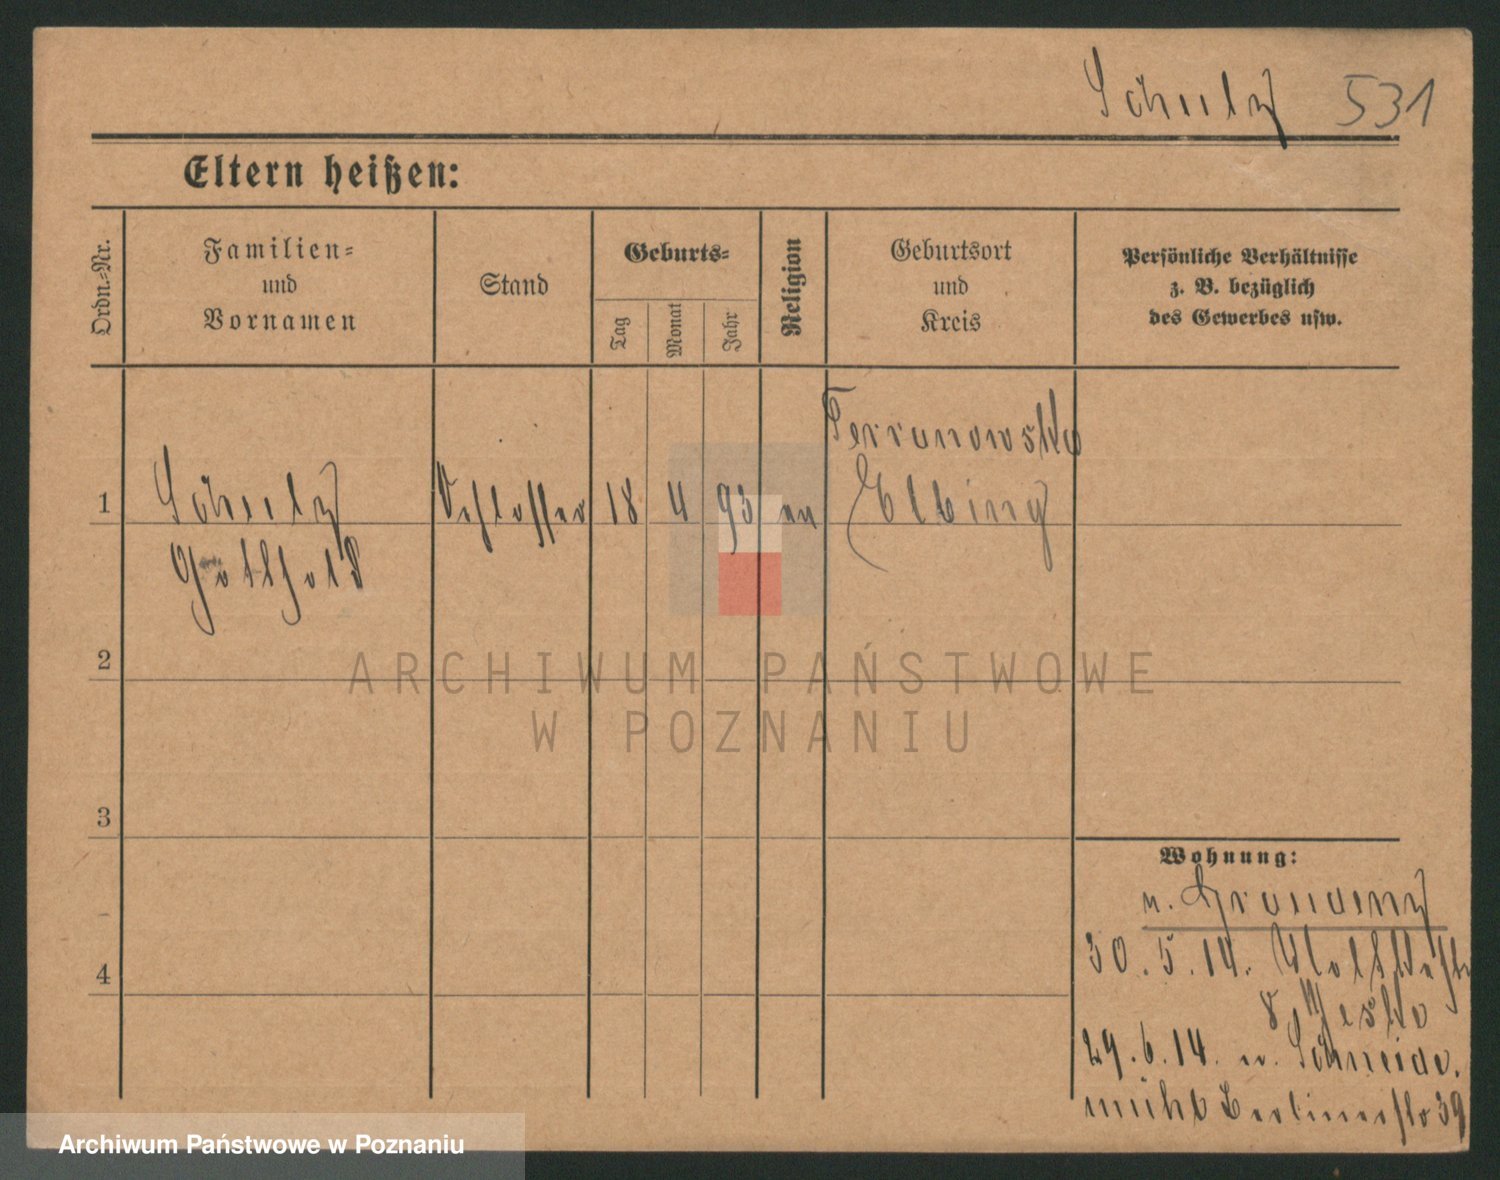 Schulz 531
Eltern heißen:
Ordn.-Nr.
Familien-
und
Vornamen
Stand
Geburts-
Tag
Monat
Jahr
Religion
Geburtsort
und
Kreis
Persönliche Verhältnisse
z. B. bezüglich
des Gewerbes usw.
1 Schulz Schlosser 18 4 93 ev
Gotthold
Elbing
2
3
4
ARCHIWUM PAŃSTWOWE
W POZNANIU
Wohnung:
n. Graudenz
30.5.14.
8
29.6.14. n. Schneide-
mühl Berlinerstr 39
Archiwum Państwowe w Poznaniu